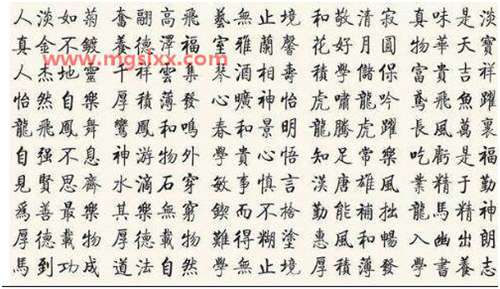 人淡如菊 奮翮高飛 藝無止境 和敬清寂 真味是淡
真金不鍍 養德澤福 室雅蘭馨 花好月圓 物華天寶
人杰地靈 千祥雲集 酒相壽 積學儲保 富貴吉祥
怡然自樂 厚積薄發 心曠神怡 虎嘯龍吟 鳶飛魚躍
龍飛鳳舞 鸞鳳和鳴 春和景明 龍騰虎躍 長風萬裏
自强不息 神游物外 學貴心悟 知足常樂 吃虧是福
見賢思齊 水滴石穿 敏事慎言 漢唐雄風 業精于勤
爲善最樂 其樂無窮 鍥而不捨 勤能補拙 龍馬精神
厚德載物 厚德載物 難得糊塗 惠風和暢 入幽出朗
馬到功成 道法自然 學無止境 厚積薄發 學書養志
www.mgsixx.com